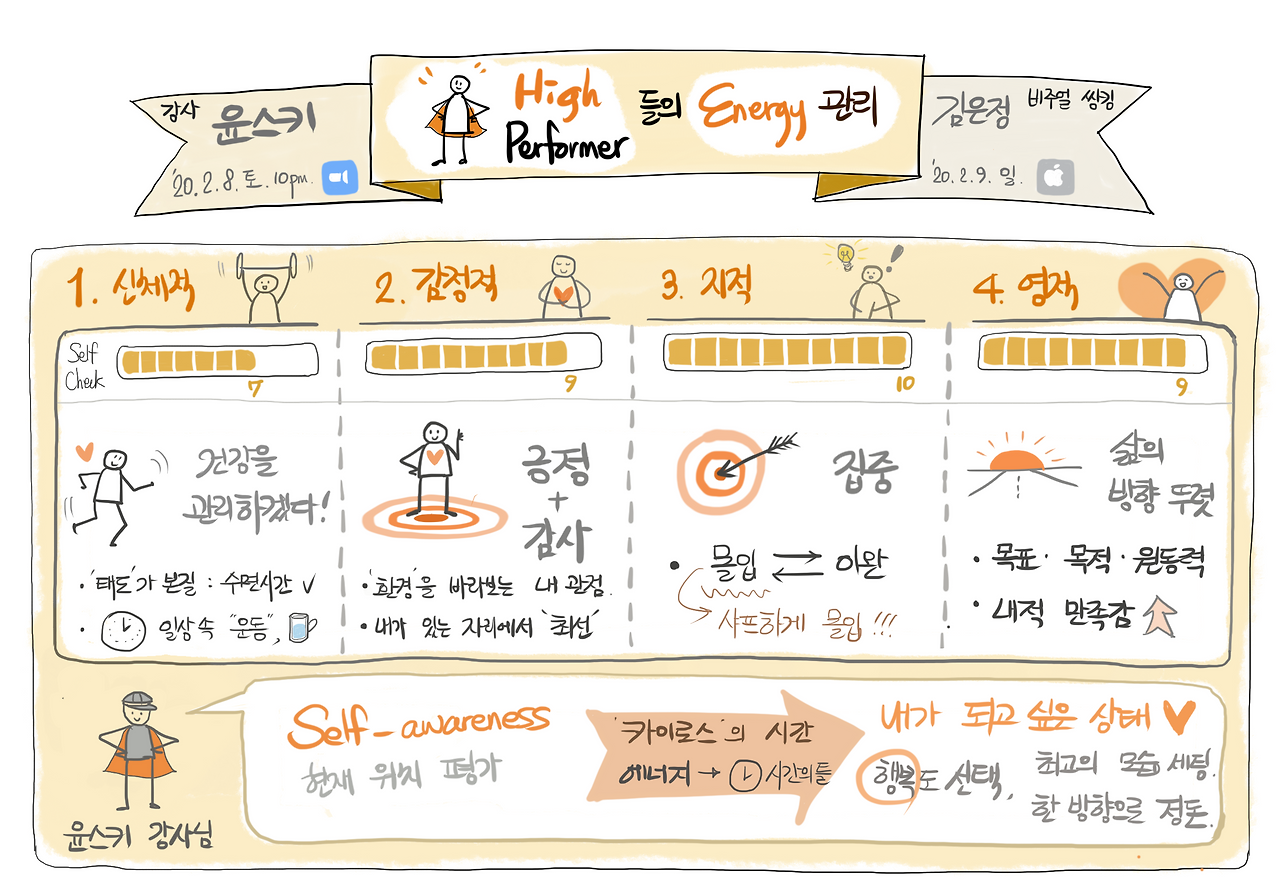 강사 윤스키
'20.2.8.토.10pm.
High
Performer
들의 Energy 관리
김은정 비주얼 씽킹
'20.2.9.일.
1. 신체적
2. 감정적
3. 지적
4. 영적
Self
Check
7
9
10
9
건강을
관리하겠다!
• '태도'가 본질 : 수면시간 ✓
• 일상 속 "운동",
긍정
+
감사
• '환경'을 바라보는 내 관점.
• 내가 있는 자리에서 '최선'
집중
• 몰입 ⇄ 이완
→ 샤프하게 몰입 !!!
삶의
방향 뚜렷
• 목표 · 목적 · 원동력
• 내적 만족감
윤스키 강사님
Self-awareness
현재 위치 평가
'카이로스'의 시간
에너지 → 시간의 틀
내가 되고 싶은 상태 ♥
행복도 선택,
최고의 모습 세팅.
한 방향으로 정돈.